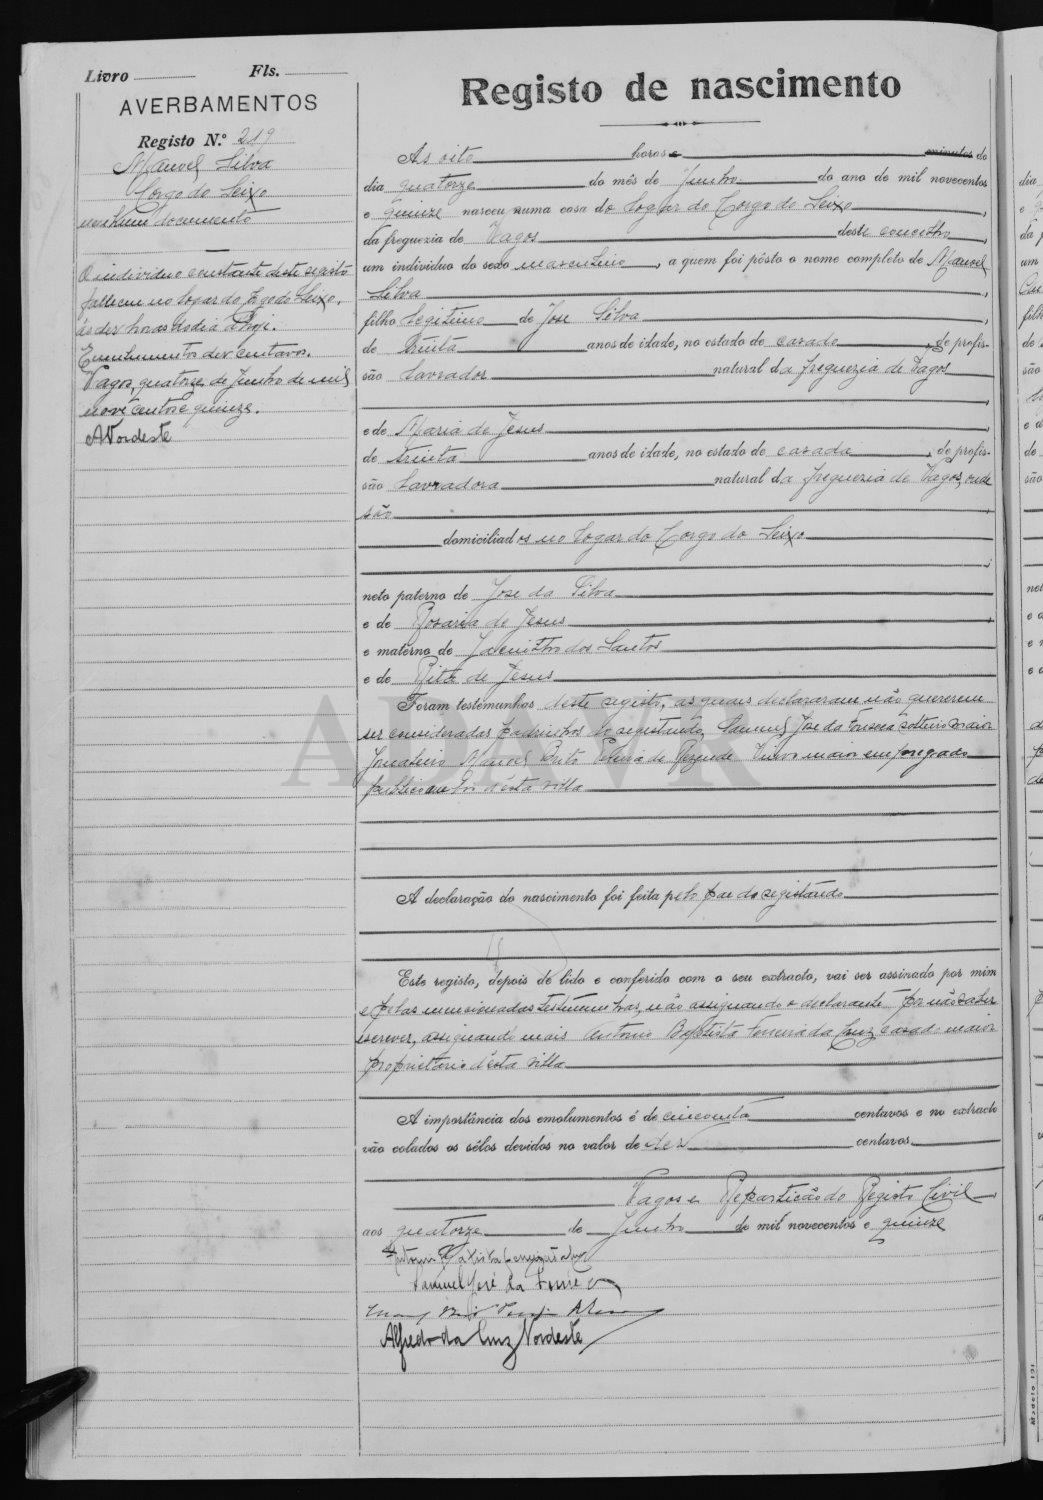 Livro Fls.
AVERBAMENTOS
Registo N.º 219
Manoel Silva
Corgo do Seixo
nenhum documento
O individuo constante deste registo
falleceu no logar do Corgo do Seixo,
ás dez horas do dia d'hoje.
Emolumentos dez centavos.
Vagos, quatorze de Junho de mil
nove centos e quinze.
ANordeste
Registo de nascimento
As oito horas e minutos do
dia quatorze do mês de Junho do ano de mil novecentos
e quinze nasceu numa casa do logar do Corgo do Seixo,
da freguezia de Vagos deste concelho,
um individuo do sexo masculino, a quem foi pôsto o nome completo de Manoel
Silva,
filho legitimo de Jose Silva,
de trinta anos de idade, no estado de casado, de profis-
são Lavrador natural da freguezia de Vagos
e de Maria de Jesus,
de trinta anos de idade, no estado de casada, de profis-
são Lavradora natural da freguezia de Vagos, onde
são,
domiciliados no logar do Corgo do Seixo
neto paterno de Jose da Silva
e de Rosaria de Jesus,
e materno de Jacinttho dos Santos
e de Rita de Jesus
Foram testemunhas deste registo, as quaes declararam não quererem
ser consideradas Padrinhos do registando, Samuel Jose da Fonseca solteiro maior
Jornaleiro Manoel Brito Pereira de Rezende Viuvo maior empregado
publico d'esta villa
A declaração do nascimento foi feita pelo pae do registando
Este registo, depois de lido e conferido com o seu extracto, vai ser assinado por mim
e pelas mensionadas testemunhas, não assignando o declarante por não saber
escrever, assignando mais Antonio Baptista Ferreira da Cruz casado maior
proprietario d'esta villa
A importância dos emolumentos é de cincoenta centavos e no extracto
vão colados os sêlos devidos no valor de dez centavos
Vagos e Repartição do Registo Civil
aos quatorze de Junho de mil novecentos e quinze
Samuel José da Fonseca
Alfredo da Cruz Nordeste
ADAVR